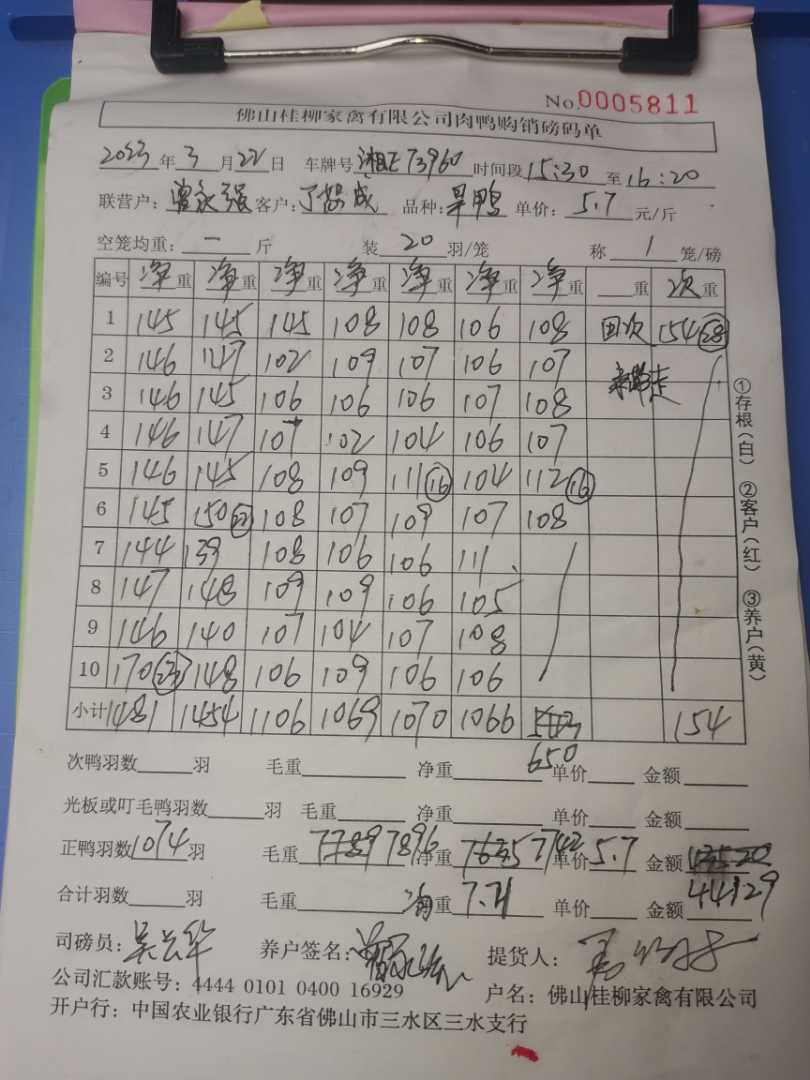 No.0005811
佛山桂柳家禽有限公司肉鸭购销磅码单
2023年3月22日 车牌号 湘E73960 时间段 15:30 至 16:20
联营户:曾永强 客户: 成 品种: 旱鸭 单价: 5.7 元/斤
空笼均重: 一 斤 装 20 羽/笼 称 1 笼/磅
编号 净重 净重 净重 净重 净重 净重 净重 重 次重
1 145 145 145 108 108 106 108 回次 154(28)
2 146 147 102 109 107 106 107
3 146 145 106 106 106 107 108 走
4 146 147 107 102 104 106 107
5 146 145 108 109 111(16) 104 112(16)
6 145 150(22) 108 107 109 107 108
7 144 139 108 106 106 111
8 147 148 109 109 106 105
9 146 140 107 104 107 108
10 170(23) 148 106 109 106 106
小计 1481 1454 1106 1069 1070 1066 154
650
次鸭羽数 羽 毛重 净重 单价 金额
光板或叮毛鸭羽数 羽 毛重 净重 单价 金额
正鸭羽数 1074 羽 毛重 7896 净重 7742 单价 5.7 金额
合计羽数 羽 毛重 重 7.21 单价 金额 44129
司磅员: 吴云华 养户签名: 曾永强 提货人:
公司汇款账号: 4444 0101 0400 16929 户名: 佛山桂柳家禽有限公司
开户行: 中国农业银行广东省佛山市三水区三水支行
①存根(白) ②客户(红) ③养户(黄)